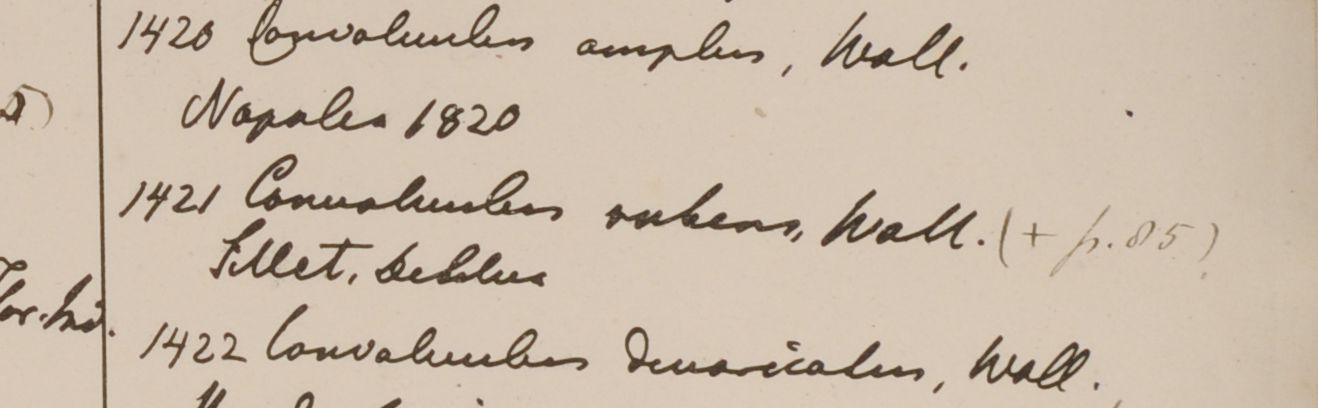 1420 Convolvulus amplus, Wall.
Napalia 1820
1421 Convolvulus rubens, Wall. (+ p. 85)
Sillet, Debbua
1422 Convolvulus divaricatus, Wall.